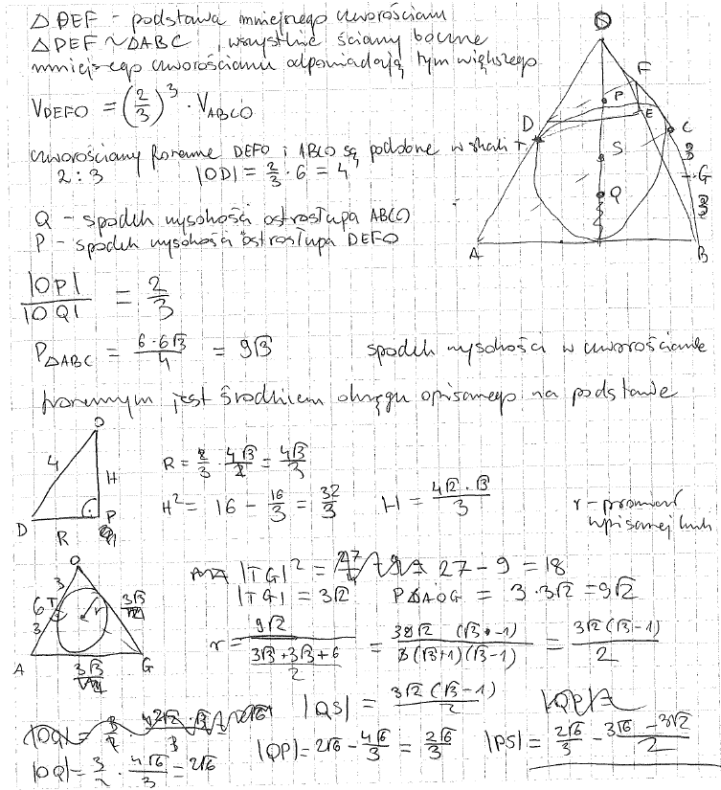 Δ DEF - podstawa mniejszego czworościanu
Δ DEF ~ Δ ABC , wszystkie ściany boczne
mniejszego czworościanu odpowiadają tym większego
V_DEFO = (2/3)^3 · V_ABCO
czworościany foremne DEFO i ABCO są podobne w skali
2 : 3 |OD| = 2/3 · 6 = 4
Q - spodek wysokości ostrosłupa ABCO
P - spodek wysokości ostrosłupa DEFO
O
F
P
E
D
C
3
S
G
Q
3
A
B
|OP| / |OQ| = 2/3
P_ΔABC = 6·6√3 / 4 = 9√3 spodek wysokości w czworościanie
foremnym jest środkiem okręgu opisanego na podstawie
O
4
H
D
R
P
R = 2/3 · 4√3/2 = 4√3/3
H² = 16 - 16/3 = 32/3 H = 4√2·√3 / 3
r - promień
wpisanej kuli
O
3
6
T
r
3
3√3
A
3√3
G
|TG|² = 27 - 9 = 18
|TG| = 3√2 P_ΔAOG = 3·3√2 = 9√2
r = 9√2 / ((3√3+3√3+6)/2) = 3√2 (√3-1) / (√3+1)(√3-1) = 3√2(√3-1) / 2
|QS| = 3√2(√3-1) / 2
|OQ| = 3/2 · 4√6/3 = 2√6
|QP| = 2√6 - 4√6/3 = 2√6/3 |PS| = 2√6/3 - 3√6-3√2 / 2